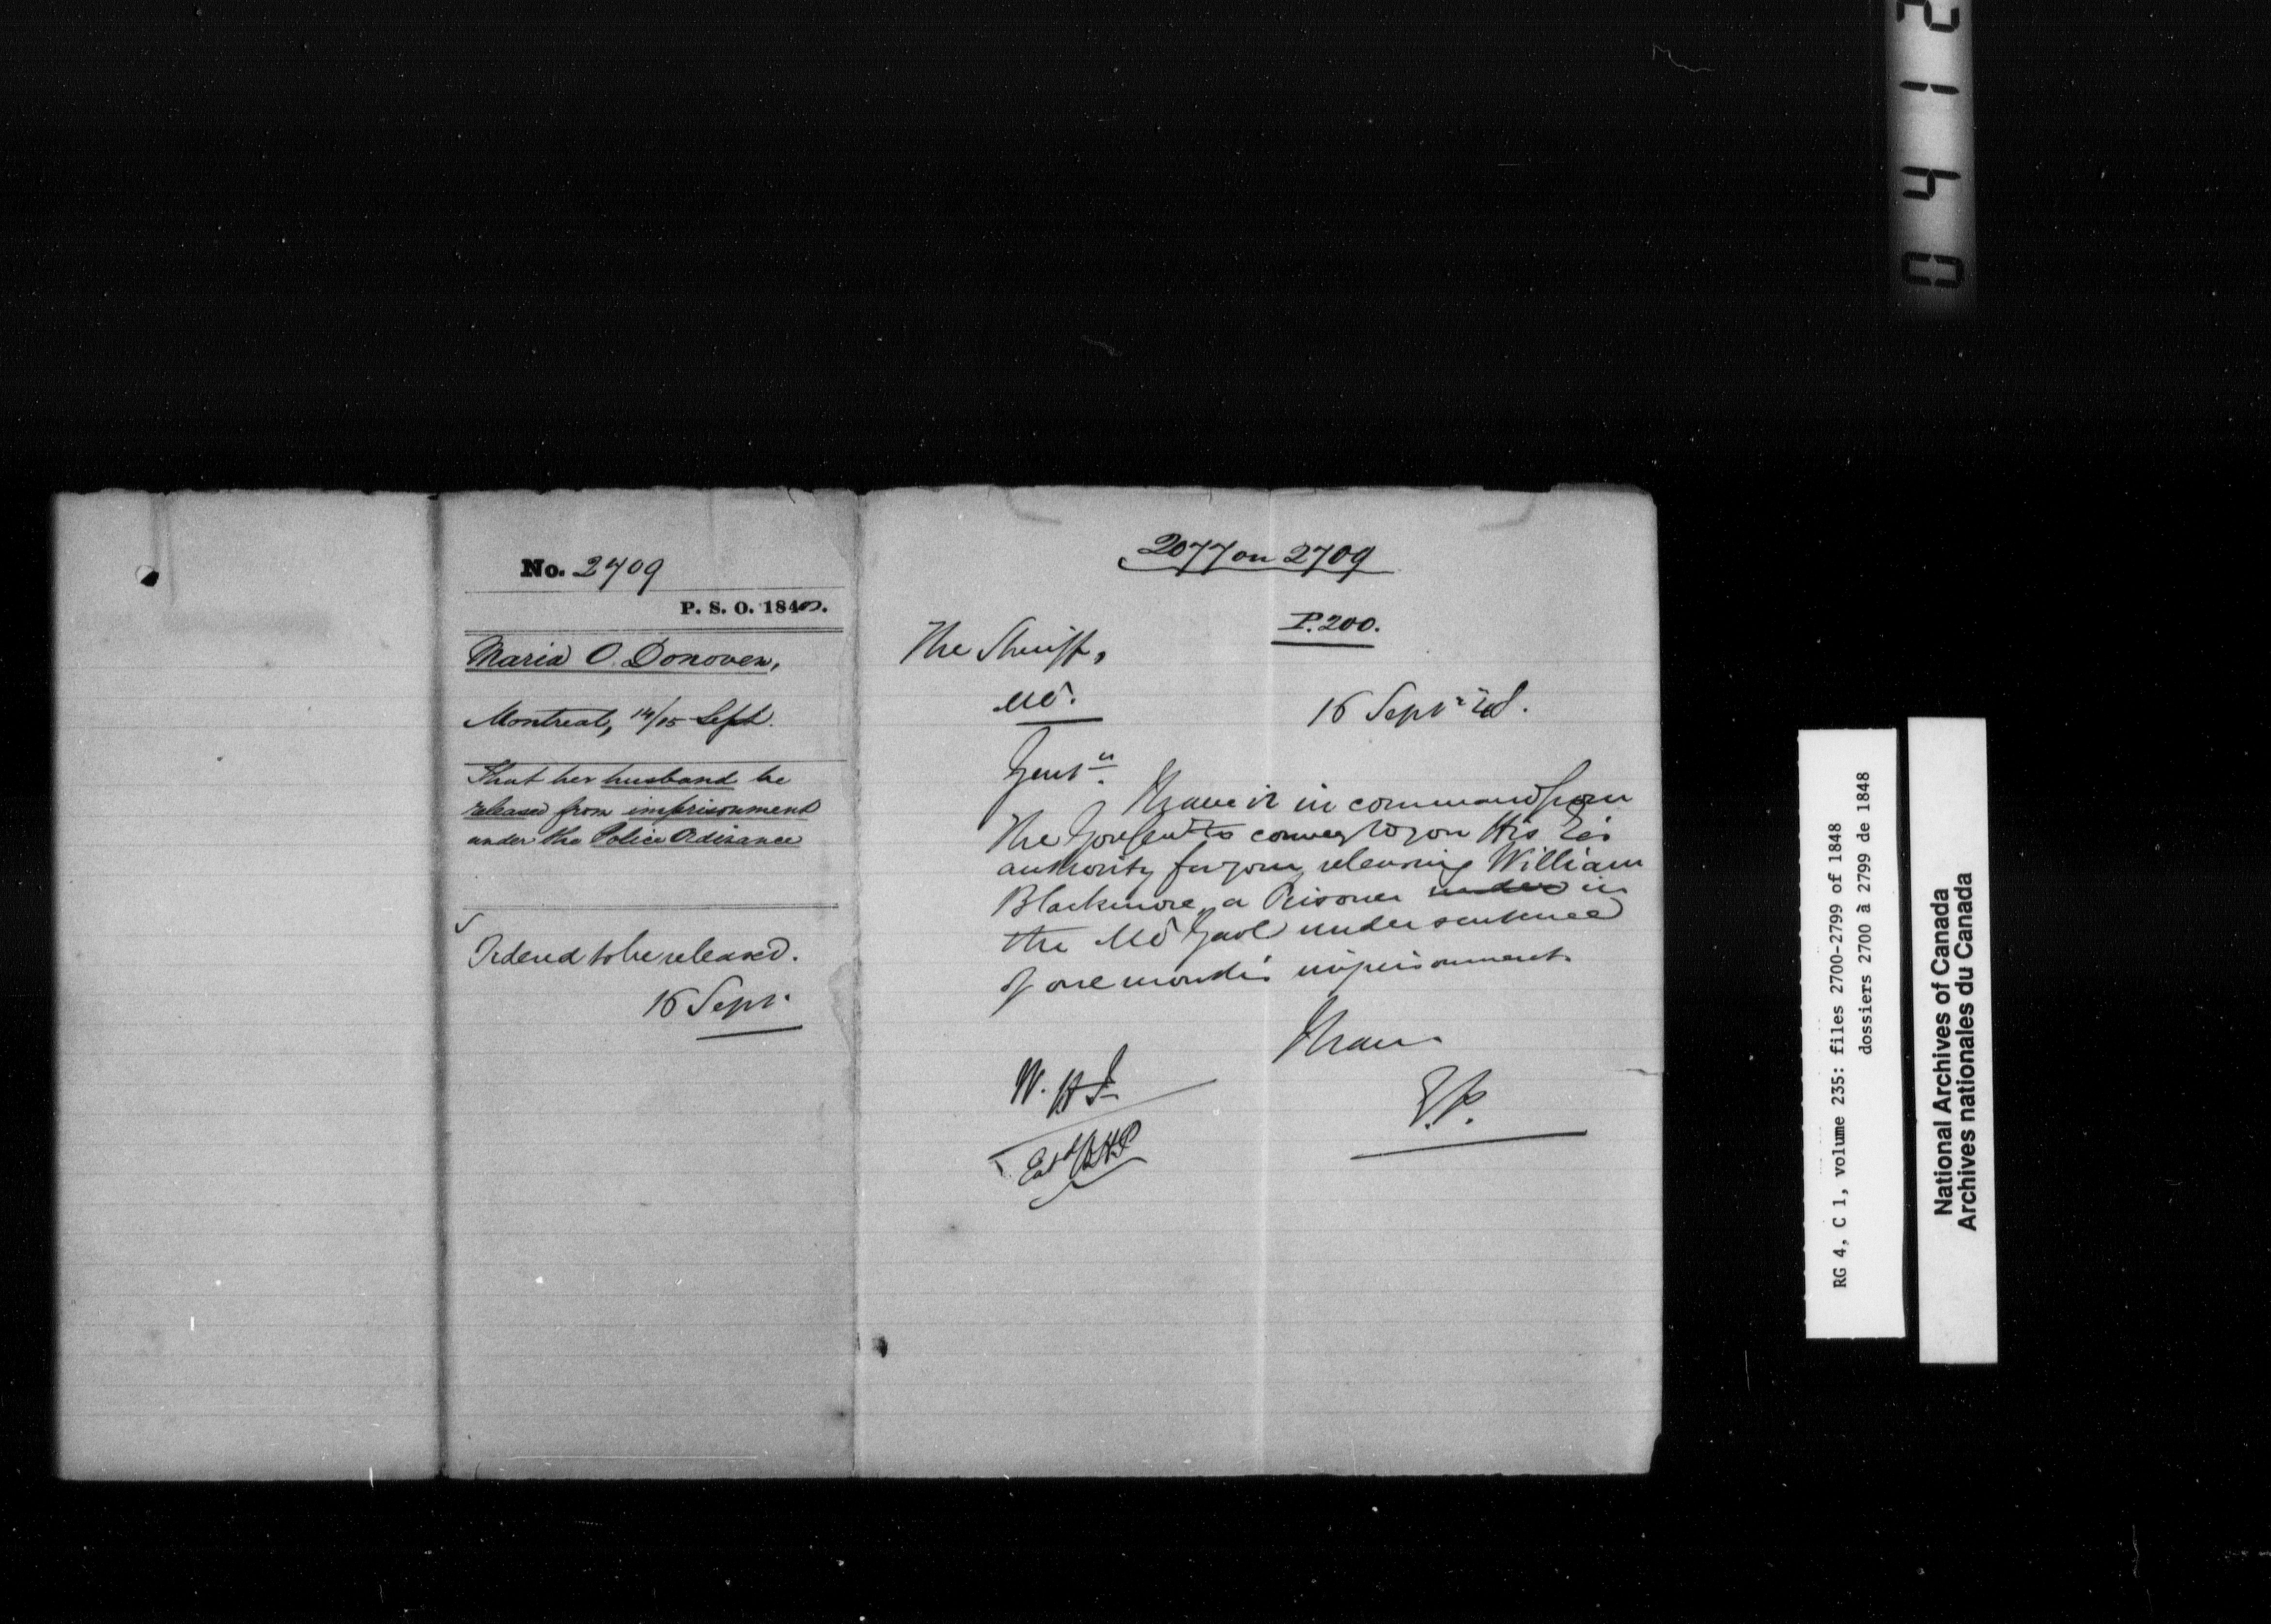 No. 2709
P. S. O. 1848.
Maria O. Donoven,
Montreal, 14/15 Sept.
That her husband be
released from imprisonment
under the Police Ordinance
Ordered to be released.
16 Sept.
2077 on 2709
P. 200.
The Sheriff,
Ml.
16 Sept. 48.
Gent.n
I have it in command from
the Gov Genl to convey to you His Ex's
authority for your releasing William
Blackmore, a Prisoner under in
the Ml Gaol under sentence
of one month's imprisonment.
I have
W. H. G
E. P.
RG 4, C 1, volume 235: files 2700-2799 of 1848
dossiers 2700 à 2799 de 1848
National Archives of Canada
Archives nationales du Canada
0 4 1 2